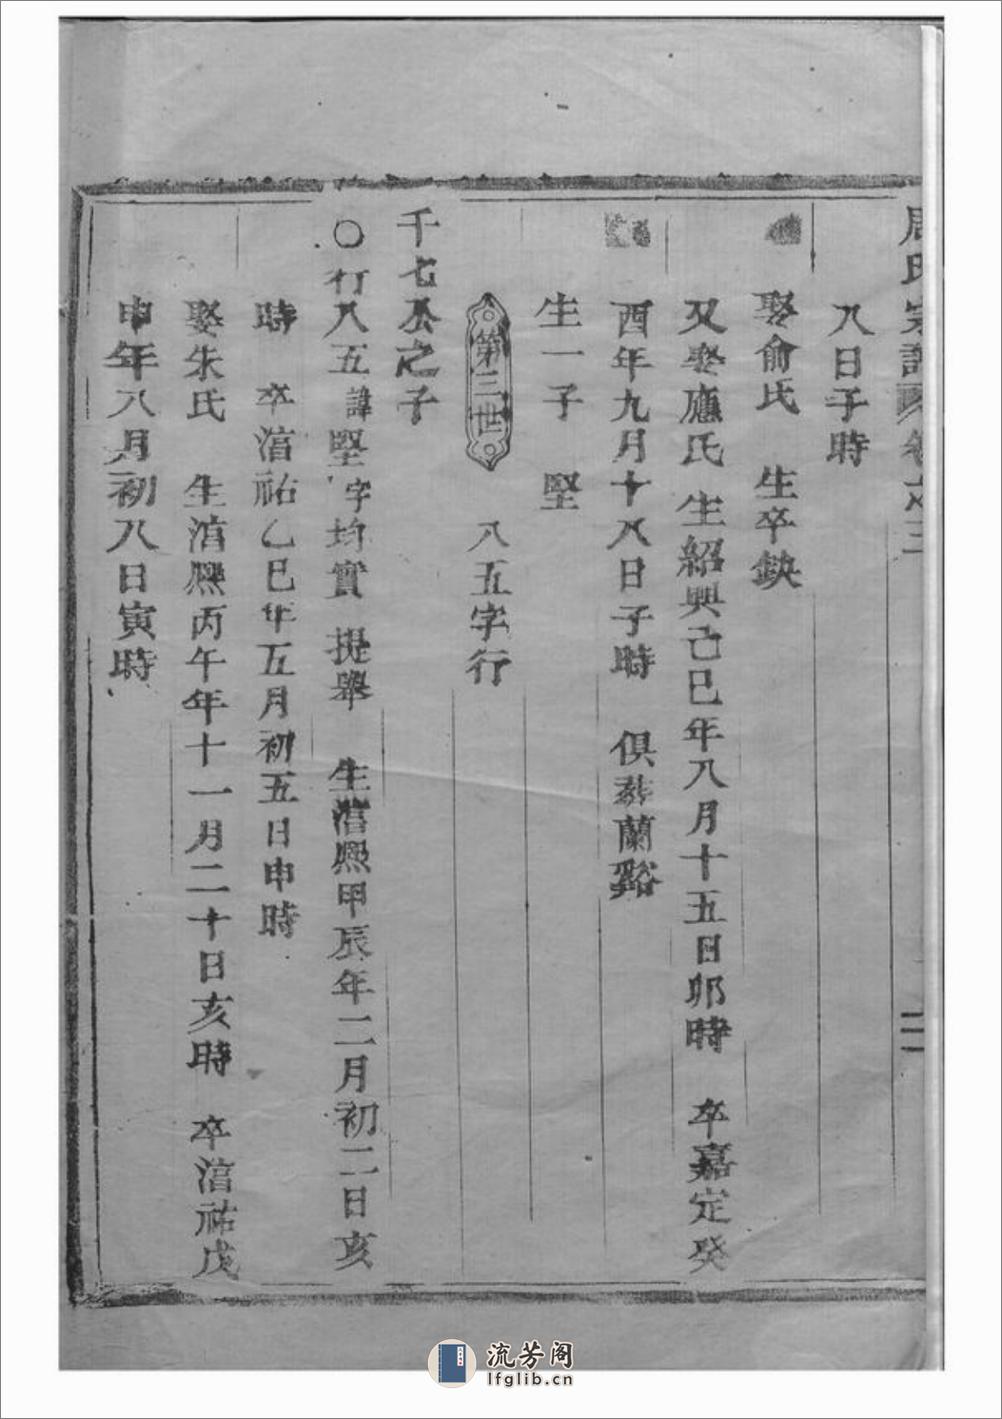 周氏宗譜 卷之三 二
八日子時
娶俞氏 生卒缺
又娶應氏 生紹興己巳年八月十五日卯時 卒嘉定癸
酉年九月十八日子時 俱葬蘭谿
生一子 堅
第三世 八五字行
千七公之子
〇行八五諱堅字均實 提舉 生淯熈甲辰年二月初二日亥
時 卒淯祐乙巳年五月初五日申時
娶朱氏 生淯熈丙午年十一月二十日亥時 卒淯祐戊
申年八月初八日寅時
流芳阁
lfglib.cn